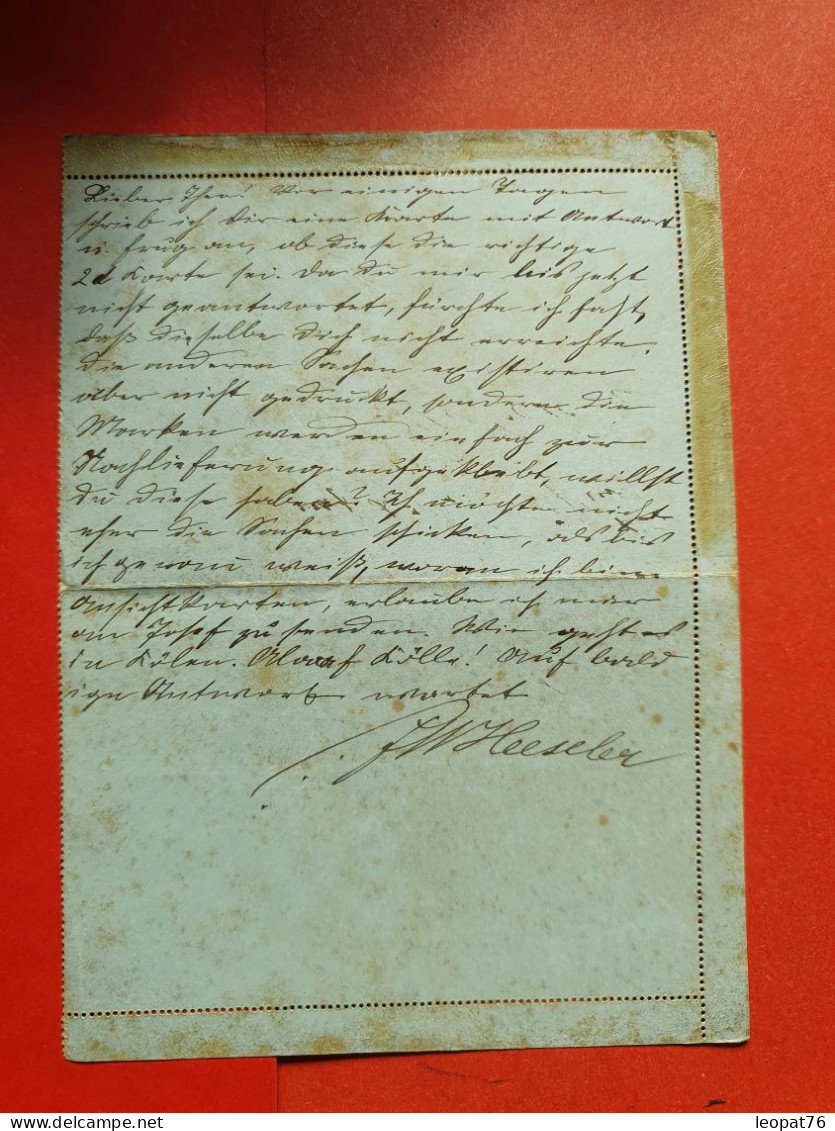 Lieber Theo! Vor einigen Tagen
schrieb ich Dir eine Karte mit Antwort
u. frug an, ob diese die richtige
2d Karte sei. Da du mir bis jetzt
nicht geantwortet, fürchte ich fast,
daß dieselbe Dich nicht erreichte.
Die anderen Sachen existiren
aber nicht gedruckt, sondern die
Marken werden einfach zur
Nachlieferung aufgeklebt, willst
du diese haben? Ich möchte nicht
eher die Sachen schicken, als bis
ich genau weiß, woran ich bin.
Ansichtkarten, erlaube ich mir
an Josef zu senden. Wie geht es
in Cölen. Alaaf Kölle! Auf bald
ige Antwort wartet
JW Heeseler
delcampe.net
leopat76